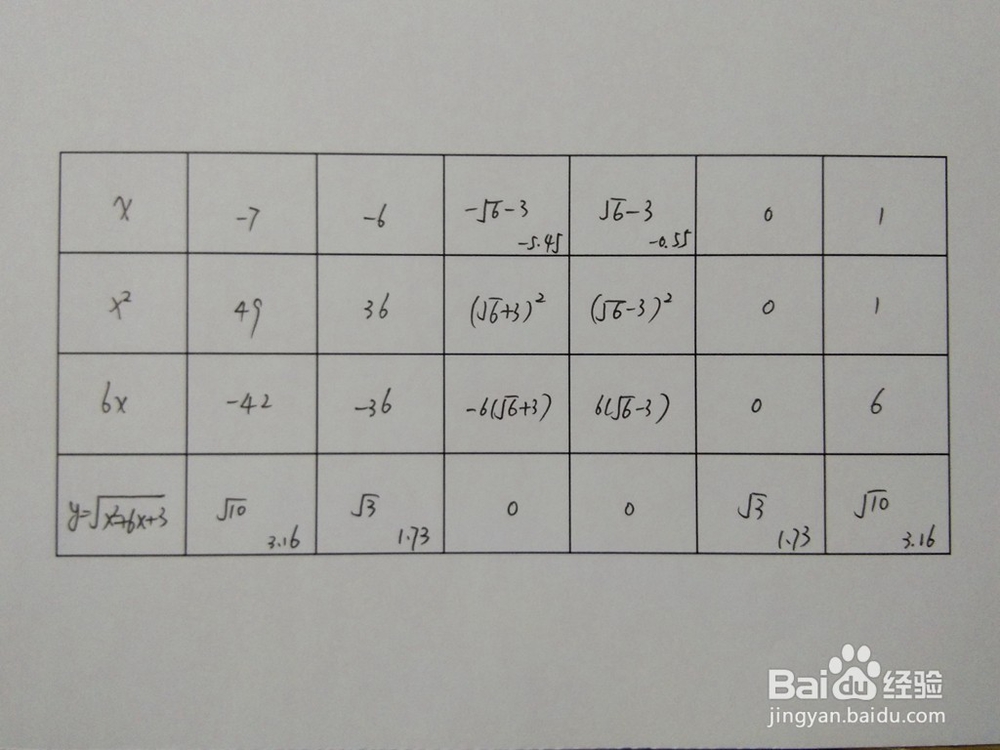 x -7 -6 -√6-3 -5.45 √6-3 -0.55 0 1
x² 49 36 (√6+3)² (√6-3)² 0 1
6x -42 -36 -6(√6+3) 6(√6-3) 0 6
y=√x²+6x+3 √10 3.16 √3 1.73 0 0 √3 1.73 √10 3.16
Baidu经验
jingyan.baidu.com